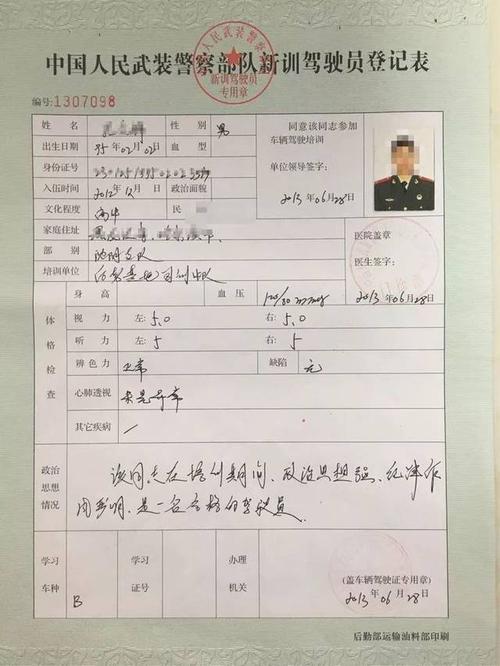 中国人民武装警察部队新训驾驶员登记表
新训驾驶员
专用章
编号:1307098
姓名 性别 男
出生日期 95年02月02日 血型
身份证号
入伍时间 2012.12月 政治面貌
文化程度 高中 民
家庭住址
部别 沈阳支队
培训单位
同意该同志参加
车辆驾驶培训
单位领导签字:
2013年06月28日
医院盖章
医生签字:
2013年06月28日
体格检查
身高 血压 120/80 mmHg
视力 左: 5.0 右: 5.0
听力 左: 5 右: 5
辨色力 正常 缺陷 无
心肺透视 未见异常
其它疾病 /
政治思想情况
该同志在培训期间、政治思想强、纪律作
风严明、是一名合格的驾驶员
学习车种 B
学习证号
办理机关
(盖车辆驾驶证专用章)
2013年06月28日
后勤部运输油料部印刷